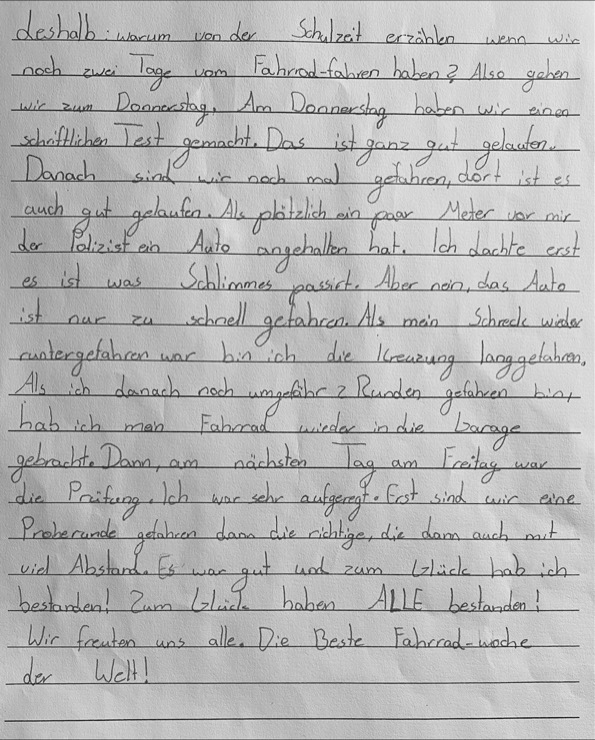 deshalb: warum von der Schulzeit erzählen wenn wir
noch zwei Tage vom Fahrrad-fahren haben? Also gehen
wir zum Donnerstag. Am Donnerstag haben wir einen
schriftlichen Test gemacht. Das ist ganz gut gelaufen.
Danach sind wir noch mal gefahren, dort ist es
auch gut gelaufen. Als plötzlich ein paar Meter vor mir
der Polizist ein Auto angehalten hat. Ich dachte erst
es ist was Schlimmes passirt. Aber nein, das Auto
ist nur zu schnell gefahren. Als mein Schreck wieder
runtergefahren war bin ich die Kreuzung langgefahren.
Als ich danach noch umgefähr 2 Runden gefahren bin,
hab ich men Fahrrad wieder in die Garage
gebracht. Dann, am nächsten Tag am Freitag war
die Prüfung. Ich war sehr aufgeregt. Erst sind wir eine
Proberunde gefahren dann die richtige, die dann auch mit
viel Abstand. Es war gut und zum Glück hab ich
bestanden! Zum Glück haben ALLE bestanden!
Wir freuten uns alle. Die Beste Fahrrad-woche
der Welt!